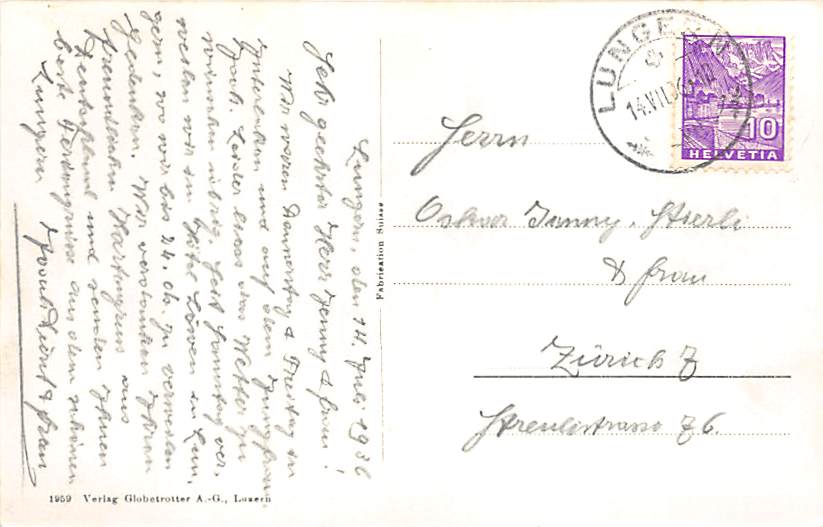 Lungern, den 14. Juli 1936
Sehr geehrter Herr Jenny & Frau!
Wir waren Donnerstag & Freitag in
Interlaken und auf dem Jungfrau-
joch. Leider liess das Wetter zu
wünschen übrig. Seit Samstag ver-
weilen wir im Hotel Löwen in Lun-
gern, wo wir bis 24. ds. zu verweilen
gedenken. Wir verdanken Ihren
freundlichen Kartengruss aus
Deutschland und senden Ihnen
beste Feriengrüsse aus dem schönen
Lungern
& Frau
1959 Verlag Globetrotter A.-G., Luzern
Fabrication Suisse
LUNGERN
14.VII.36
10
HELVETIA
Herrn
Oskar Jenny-Stierli
& Frau
Zürich 7
Streulistrasse 76.